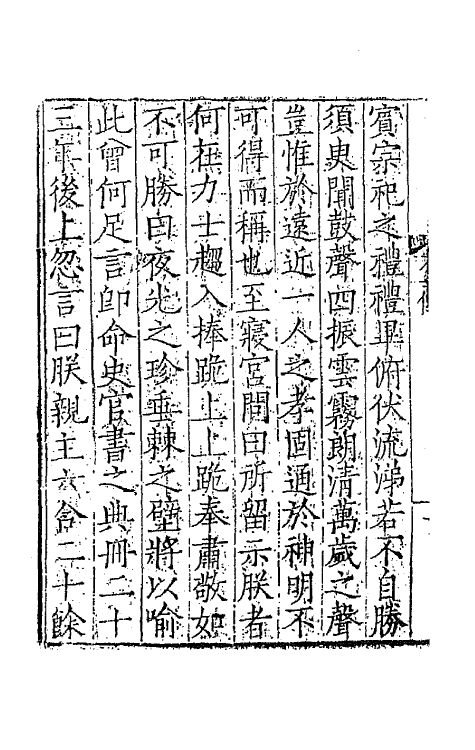 賓宗祀之禮禮畢俯伏流涕若不自勝
須臾聞鼓聲四振雲霧朗清萬歲之聲
豈惟於遠近一人之孝固通於神明不
可得而稱也至寢宮問曰所留示朕者
何撫力士趨入捧跪上上跪奉肅敬如
不可勝曰夜光之珍垂棘之璧將以喻
此曾何足言即命史官書之典冊二十
三年後上忽言曰朕親主六合二十餘